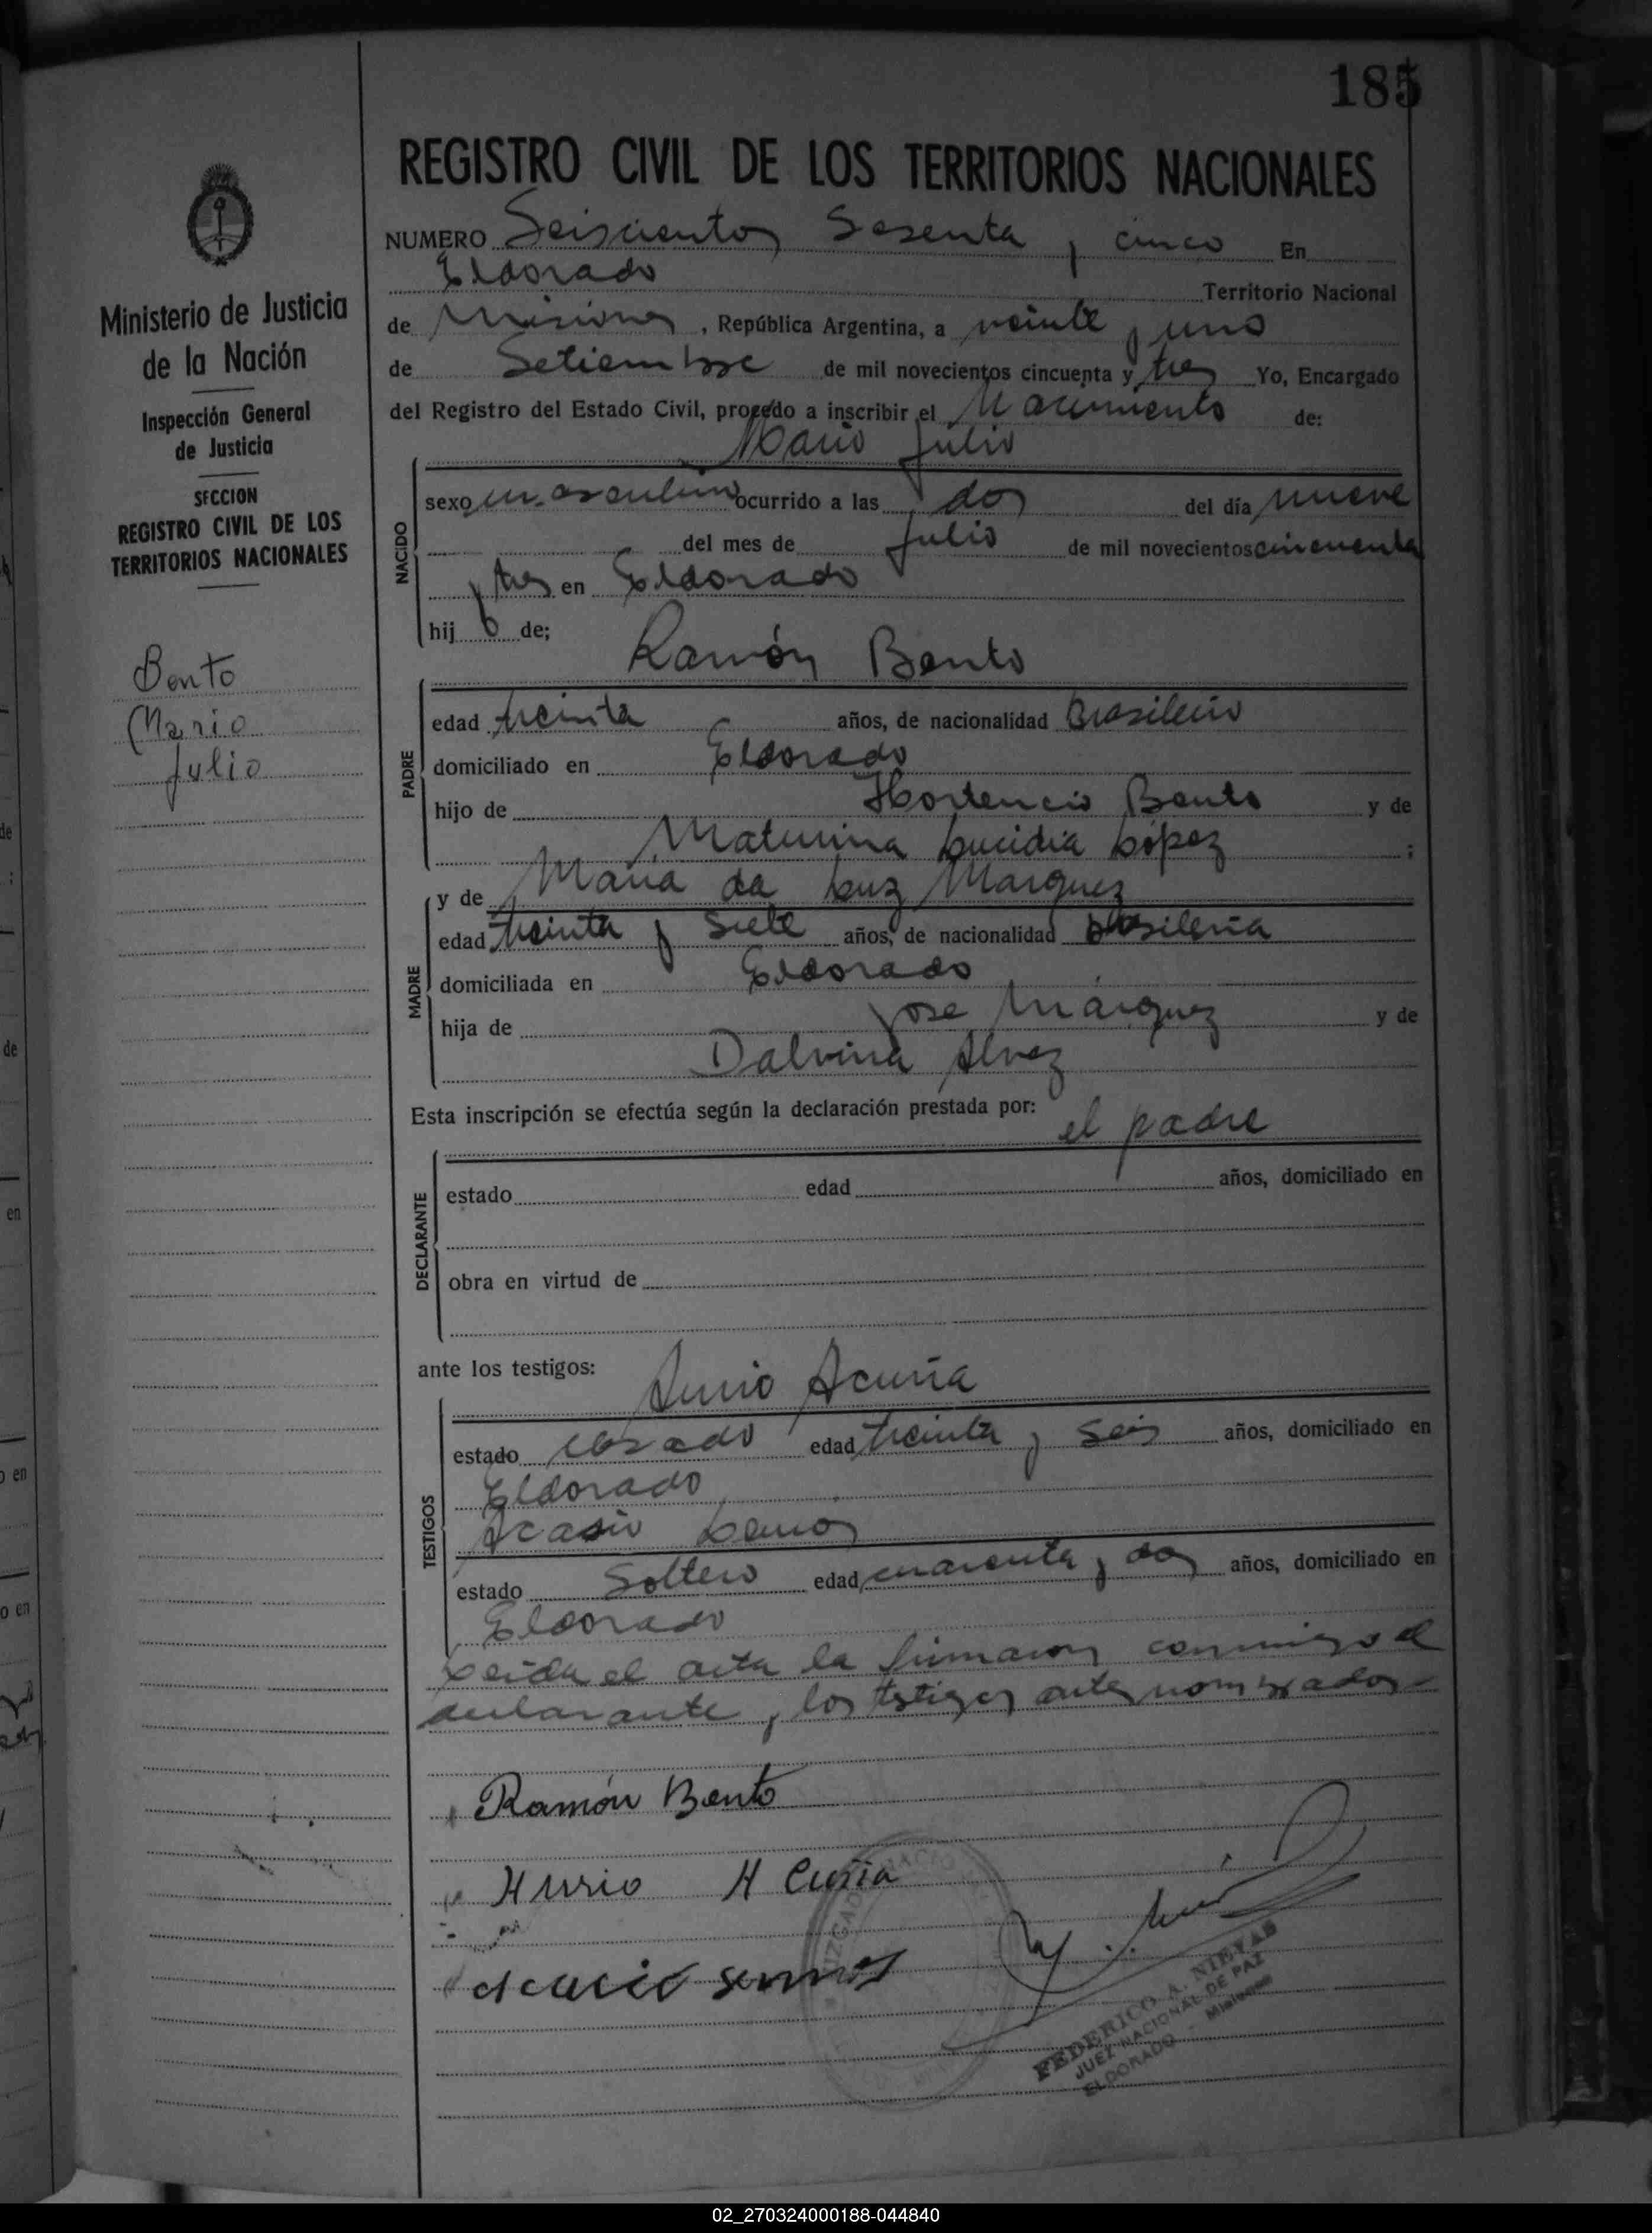 185
REGISTRO CIVIL DE LOS TERRITORIOS NACIONALES
NUMERO Seiscientos Sesenta y cinco En
Eldorado Territorio Nacional
de Misiones, República Argentina, a veinte y uno
de Setiembre de mil novecientos cincuenta y tres Yo, Encargado
del Registro del Estado Civil, procedo a inscribir el Nacimiento de:
Mario Julio
NACIDO
sexo masculino ocurrido a las dos del día nueve
del mes de Julio de mil novecientos cincuenta
y tres en Eldorado
hijo de;
Ramón Bento
PADRE
edad treinta años, de nacionalidad Brasileño
domiciliado en Eldorado
hijo de Hortencio Bento y de
Maturina Lucidia López ;
y de Maria da Luz Marquez
MADRE
edad treinta y siete años, de nacionalidad brasileña
domiciliada en Eldorado
hija de Jose Márquez y de
Dalvina Alvez
Esta inscripción se efectúa según la declaración prestada por:
el padre
DECLARANTE
estado edad años, domiciliado en
obra en virtud de
ante los testigos:
Acuña
TESTIGOS
estado casado edad treinta y seis años, domiciliado en
Eldorado
Acasio Lemos
estado Soltero edad cuarenta y dos años, domiciliado en
Eldorado
Leida el acta la firmaron conmigo el
declarante y los testigos antes nombrados
Ramón Bento
H Cuñia
FEDERICO A. NIEVAS
JUEZ NACIONAL DE PAZ
ELDORADO - Misiones
Ministerio de Justicia
de la Nación
Inspección General
de Justicia
SECCION
REGISTRO CIVIL DE LOS
TERRITORIOS NACIONALES
Bento
Mario
Julio
02_270324000188-044840